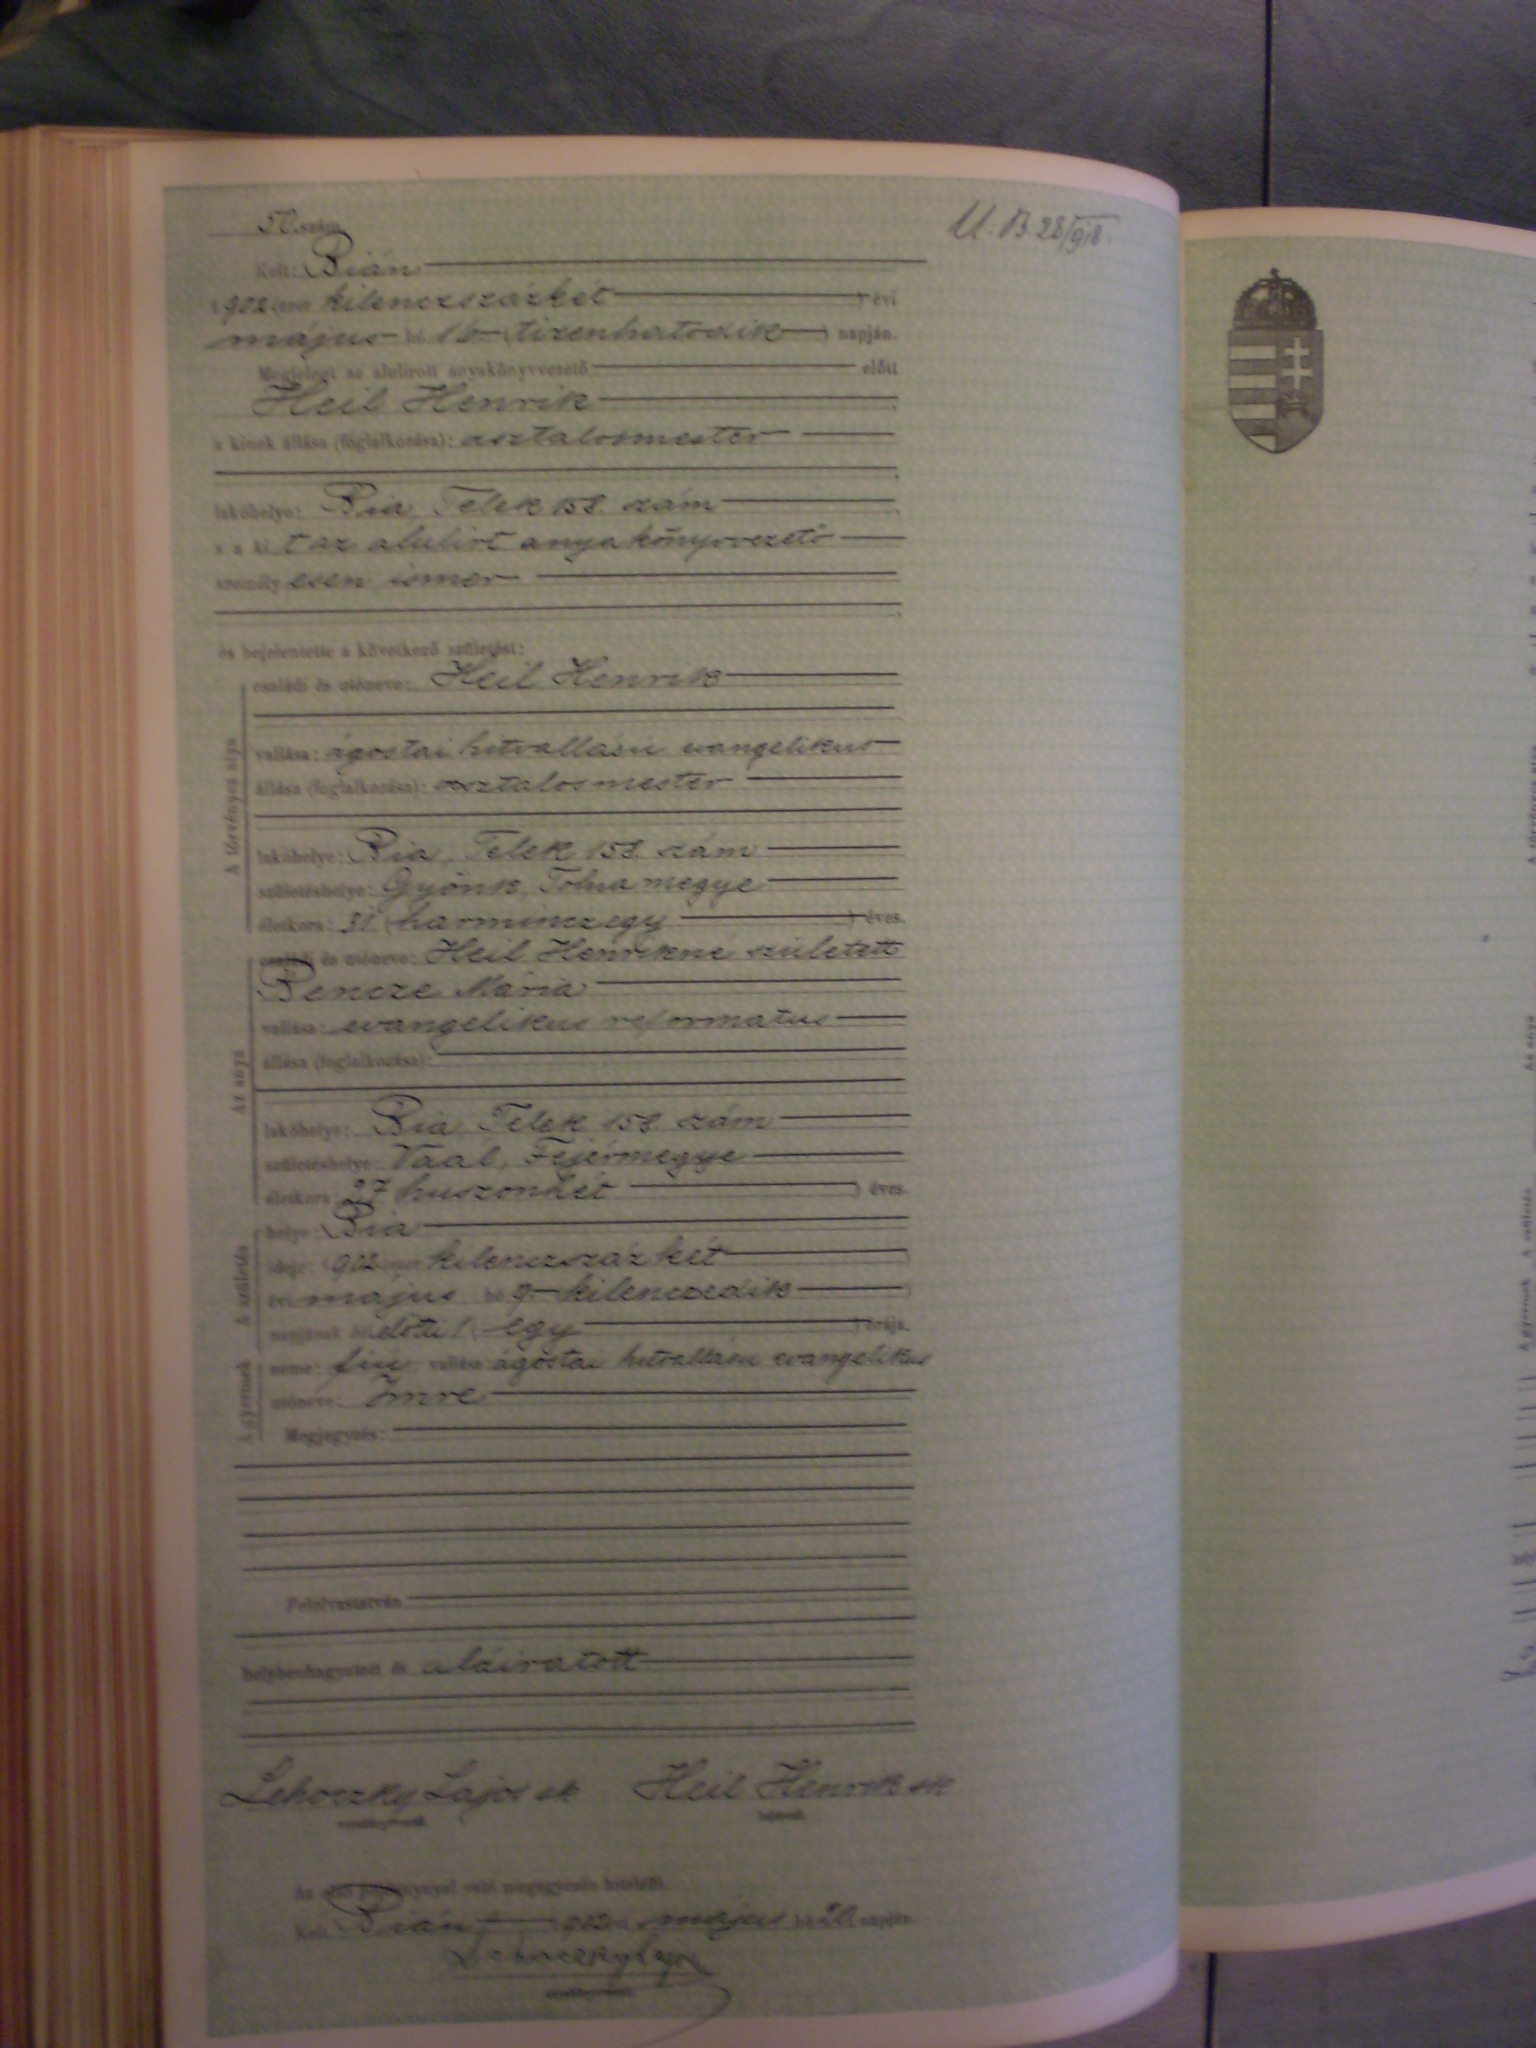 50. szám
U. B. 28/918.
Kelt: Bián
1902 (ezer kilenczszázkét) évi
május hó 16 (tizenhatodik) napján.
Megjelent az alulirott anyakönyvvezető előtt
Heil Henrik
a kinek állása (foglalkozása): asztalosmester
lakóhelye: Bia, Telek 158. szám
s a kit az alulirt anyakönyvvezető
személyesen ismer
és bejelentette a következő születést:
A törvényes atya
családi és utóneve: Heil Henrik
vallása: ágostai hitvallású evangelikus
állása (foglalkozása): asztalosmester
lakóhelye: Bia, Telek 158. szám
születéshelye: Gyönk, Tolna megye
életkora: 31 (harminczegy) éves.
Az anya
családi és utóneve: Heil Henrikné született
Bencze Mária
vallása: evangelikus reformatus
állása (foglalkozása):
lakóhelye: Bia, Telek 158. szám
születéshelye: Vaál, Fejérmegye
életkora: 27 (huszonhét) éves.
A születés
helye: Bia
ideje: 1902 (ezer kilenczszázkét)
évi május hó 9. kilenczedik
napjának délelőtti 1 (egy) órája.
A gyermek
neme: fiú vallása: ágostai hitvallású evangelikus
utóneve: Imre
Megjegyzés:
Felolvastatván
helybenhagyatott és aláiratott
Lehoczky Lajos sk Heil Henrik sk
anyakönyvvezető. bejelentő.
Az első példánynyal való megegyezés hiteléül.
Kelt Bián 1902 évi május hó 20. napján.
Lehoczky Lajos
anyakönyvvezető.